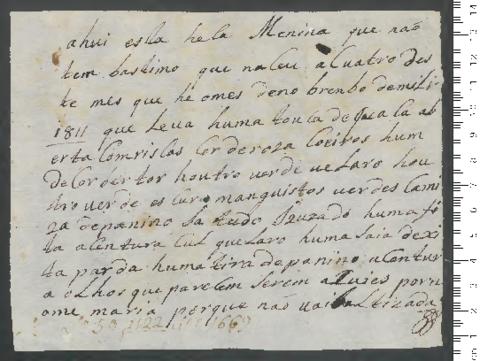 ahui esta hela Menina que não
tem bastimo que naseu a Cuatro des
te mes que he omes deno brenbo demil i
1811 que Leva huma touca de Ca la ab
erta Comriscas Cor derosa Coeiros hum
de Cor der tor houtro verde veLaro hou
tro verde es Curo manguistos verdes Cami
za depanino tudo huzado huma fi
ta a Sentura huma Saia de xi
ta parda huma tira depanino a Contur
a olhos que paresem serem por n
ome maria porque não vai bautizada